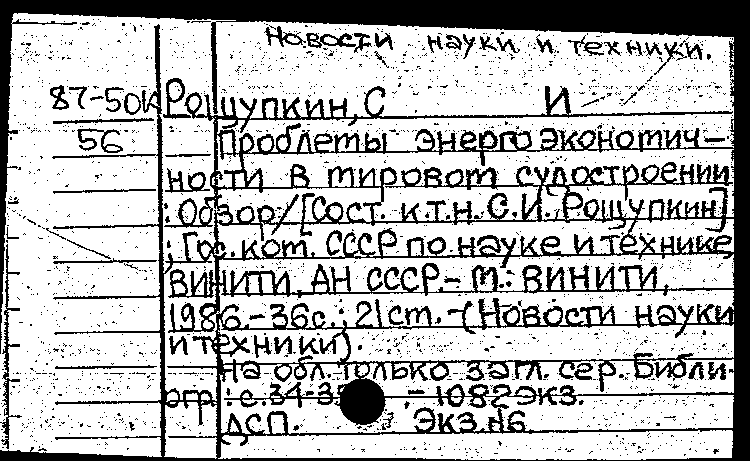 Новости науки и техники.
87-50к Рощупкин, С И
56 Проблемы энергоэкономич-
ности в мировом судостроении
: Обзор/[Сост. к.т.н. С.И. Рощупкин]
; Гос. ком. СССР по науке и технике
ВИНИТИ, АН СССР.- М.: ВИНИТИ,
1986.-36с.; 21см.-(Новости науки
и техники).
На обл. только загл. сер. Библи-
огр.: с.34-35 .- 1082экз.
ДСП. Экз.№6